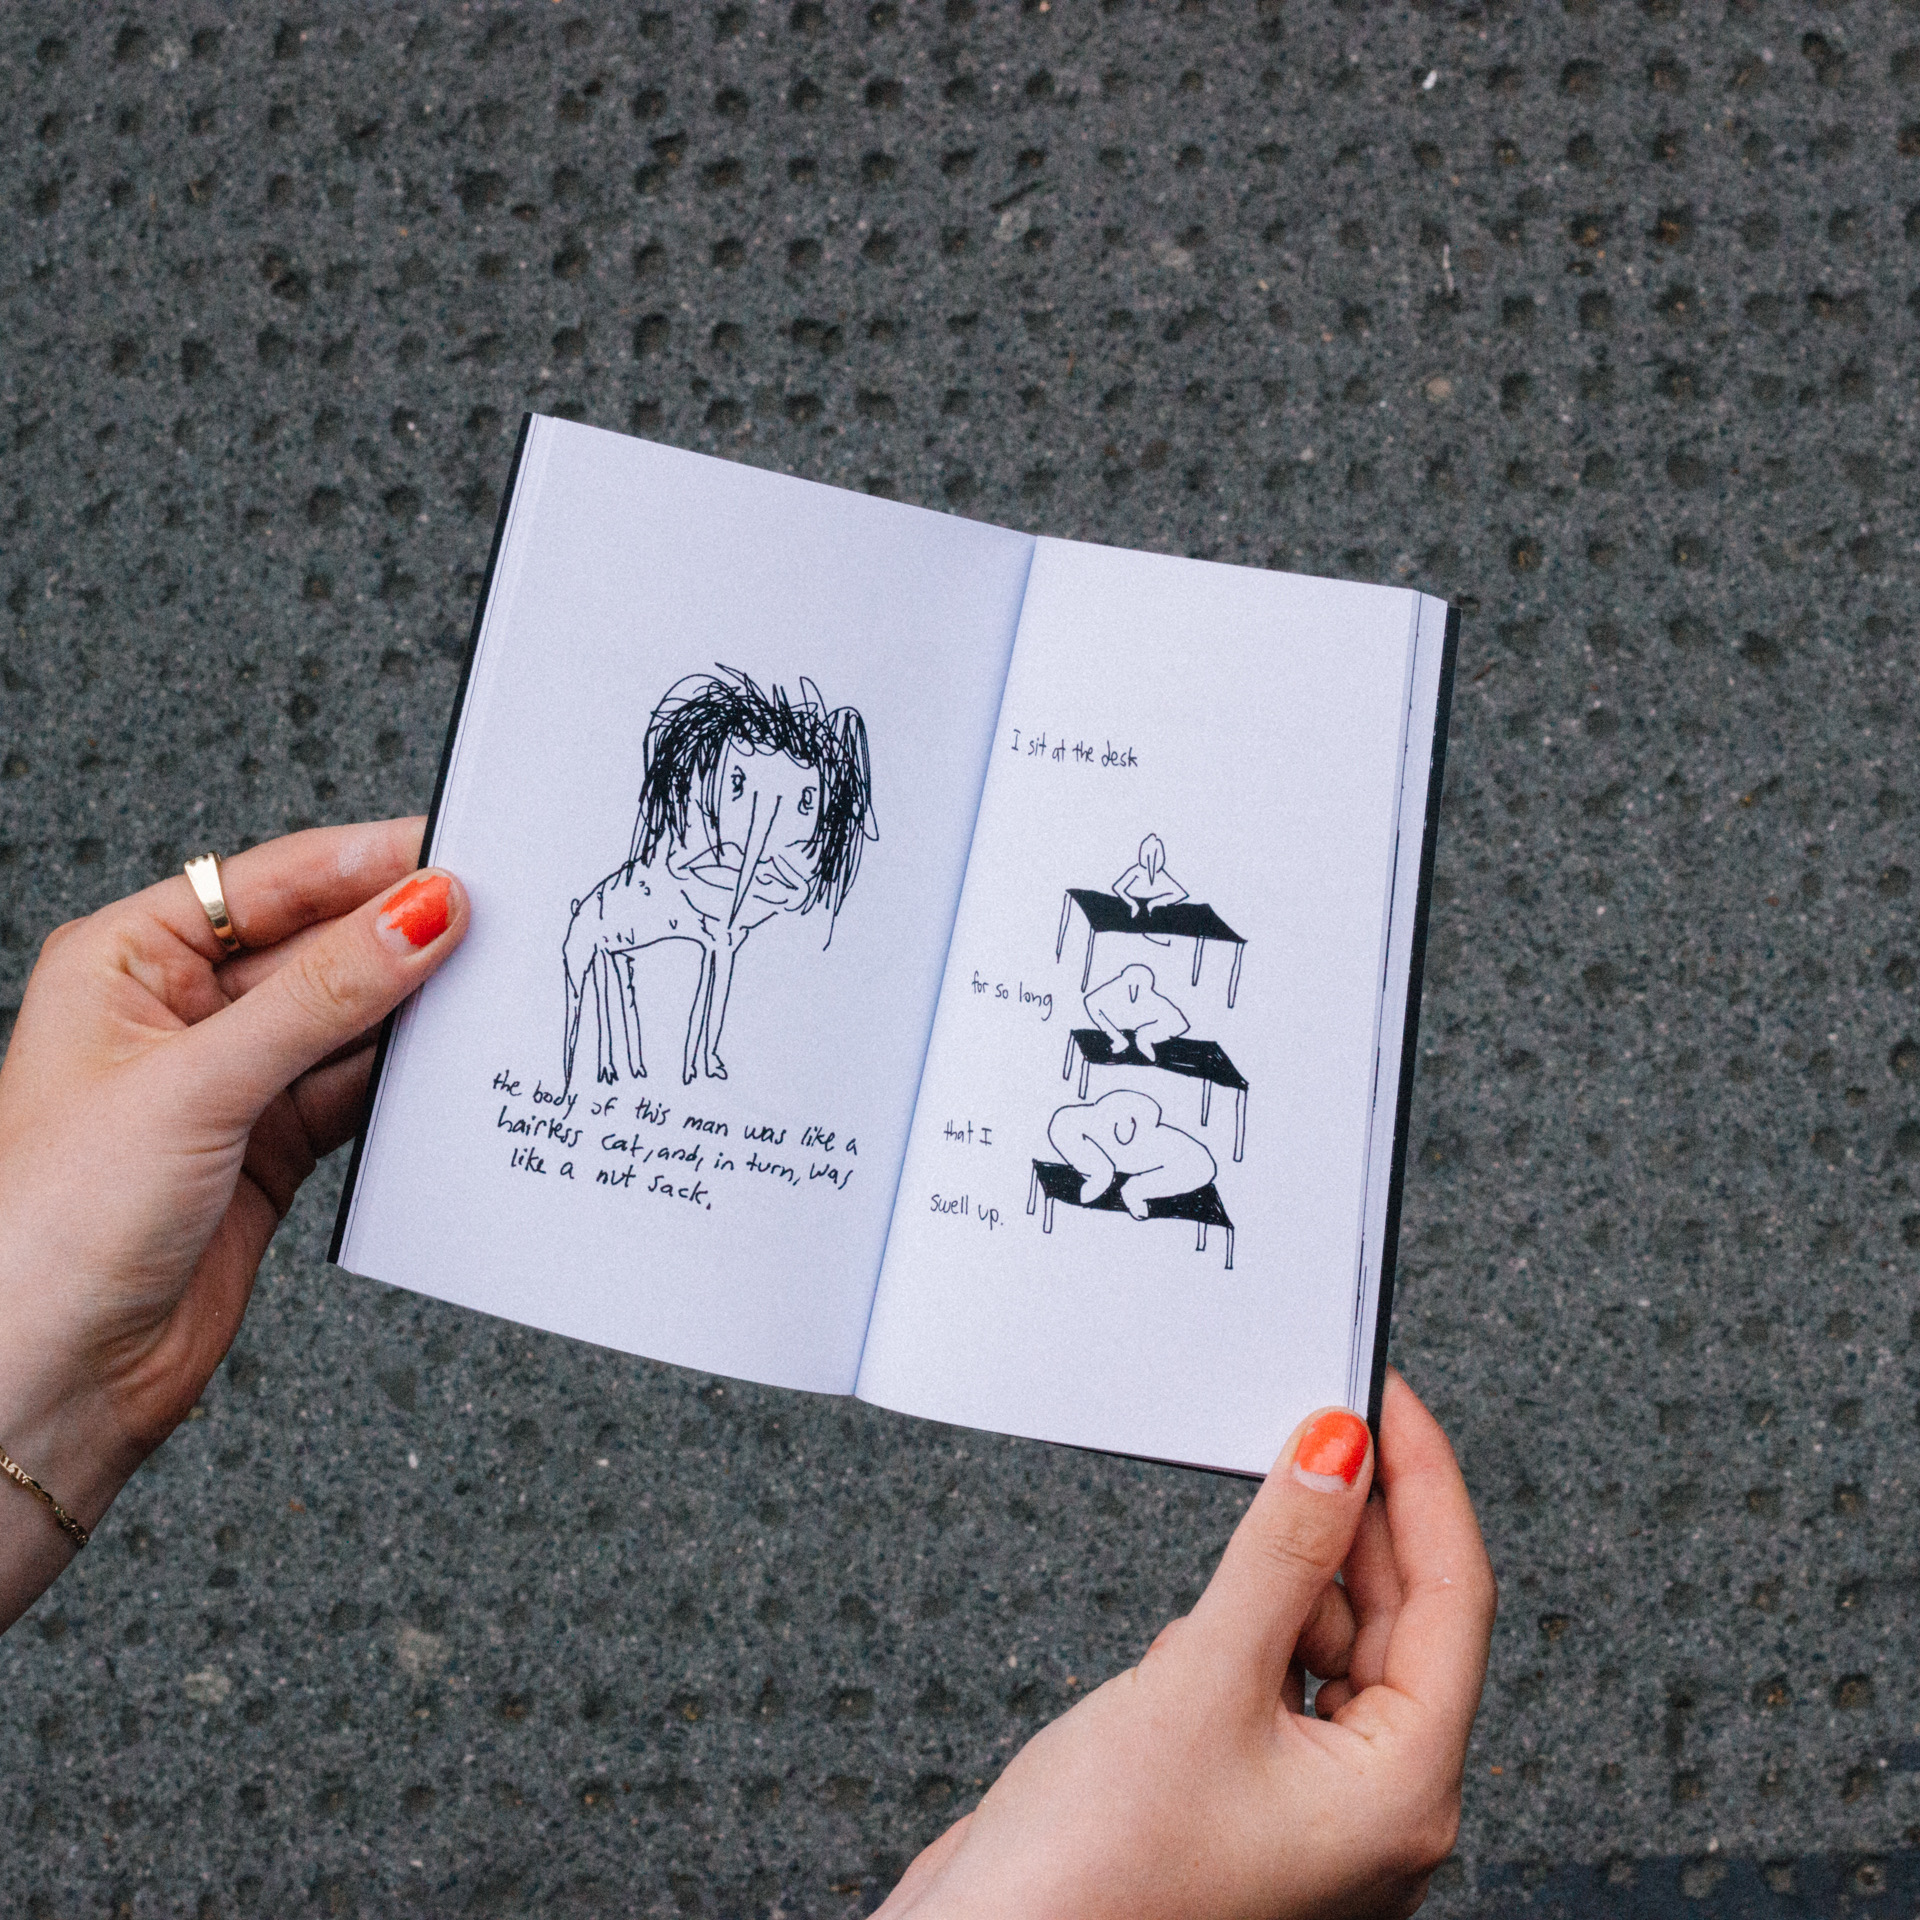 the body of this man was like a
hairless cat, and, in turn, was
like a nut sack.
I sit at the desk
for so long
that I
swell up.